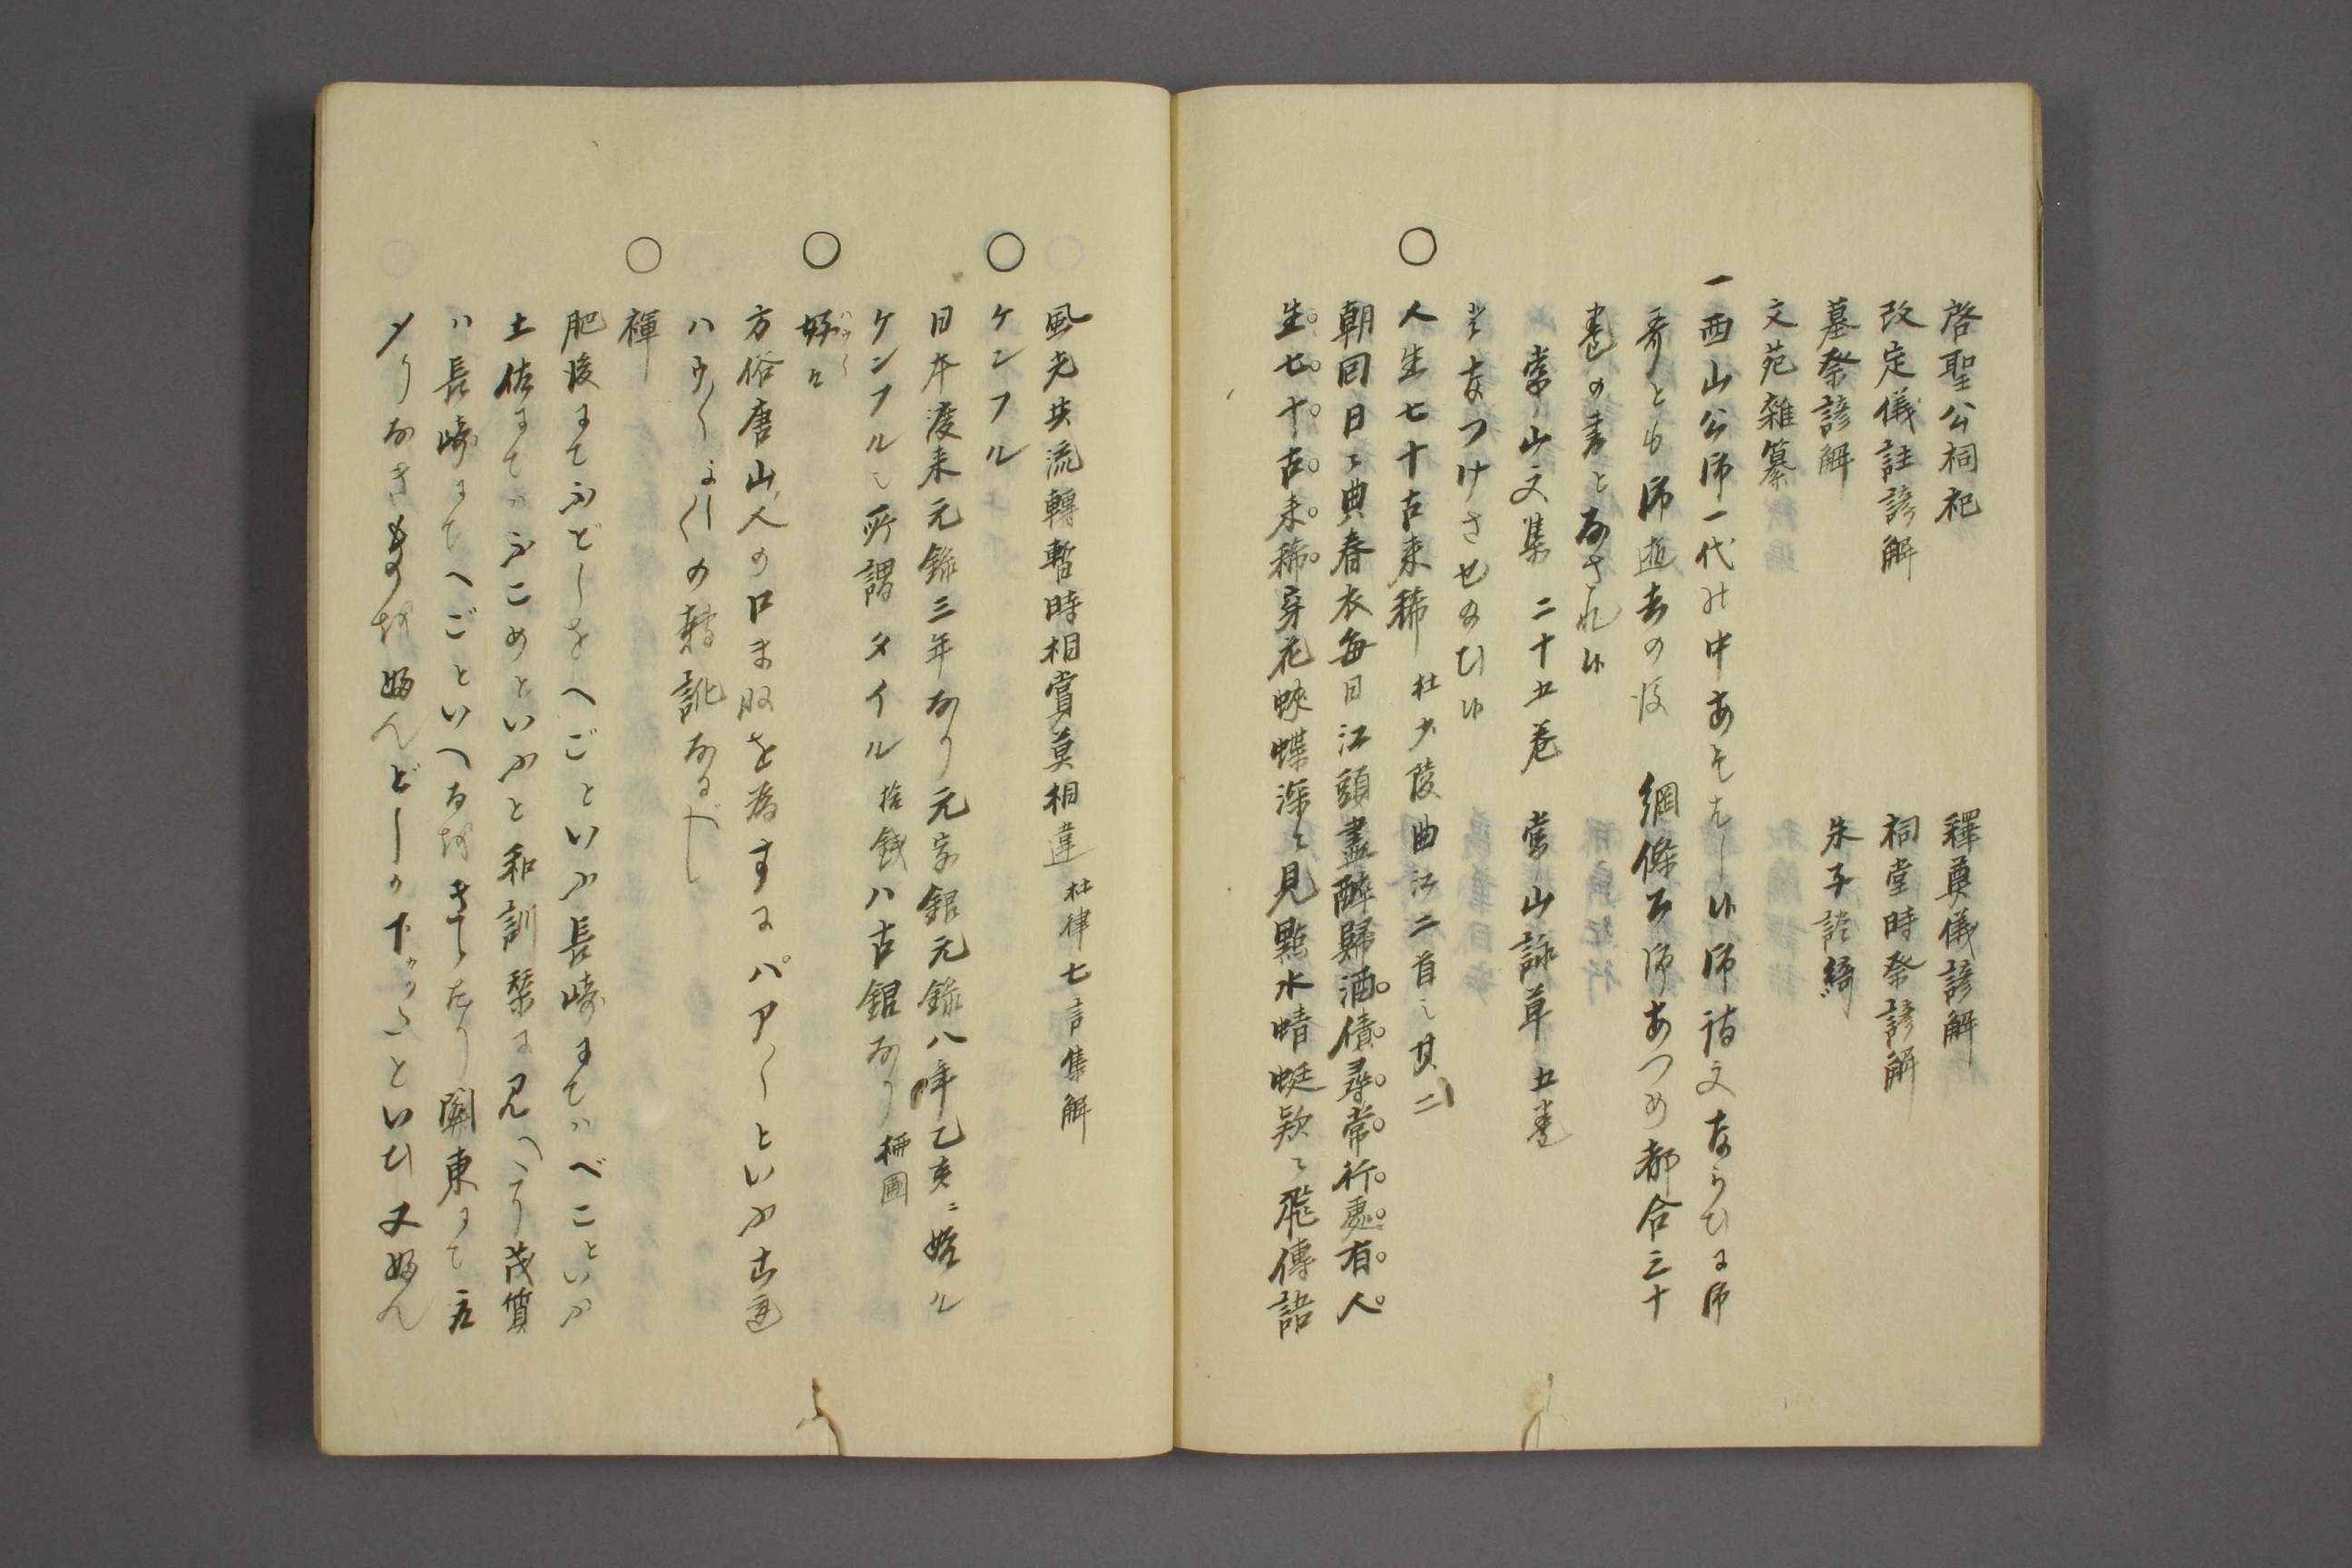 啓聖公祠祀　釋奠儀諺解
改定儀註諺解　祠堂時祭諺解
墓祭諺解　朱子談綺
文苑雜纂
一西山公御一代の中あそはし候御詩文ならひに御
哥とも御逝去の後　綱條公御あつめ都合三十
巻の書となされ候
常山文集　二十五巻　常山詠草　五巻
となつけさせのひ候
○人生七十古来稀　杜少陵曲江二首ノ其二
朝回日〻典春衣毎日江頭盡醉歸酒債尋常行處有人
生七十古来稀穿花蛺蝶深〻見點水蜻蜓欵〻飛傳語
風光共流轉暫時相賞莫相違　杜律七言集解
○ケンフル
日本渡来元録三年なり元字銀元録八年乙亥ニ始ル
ケンフルノ所謂タイル　拾銭ハ古銀なり　柵圖
○好々
方俗唐山人の口ま似を為すにパア〱といふ
ハウ〱　の轉訛なるべし
○褌
肥後にてふどしをへごといふ長崎にてハべこといふ
土佐にてハふこめといふと和訓栞に見へたり茂質
ハ長崎にてへごといへるをきゝたり關東にて
まりなきものを婦んどしのさがりといひ又婦ん